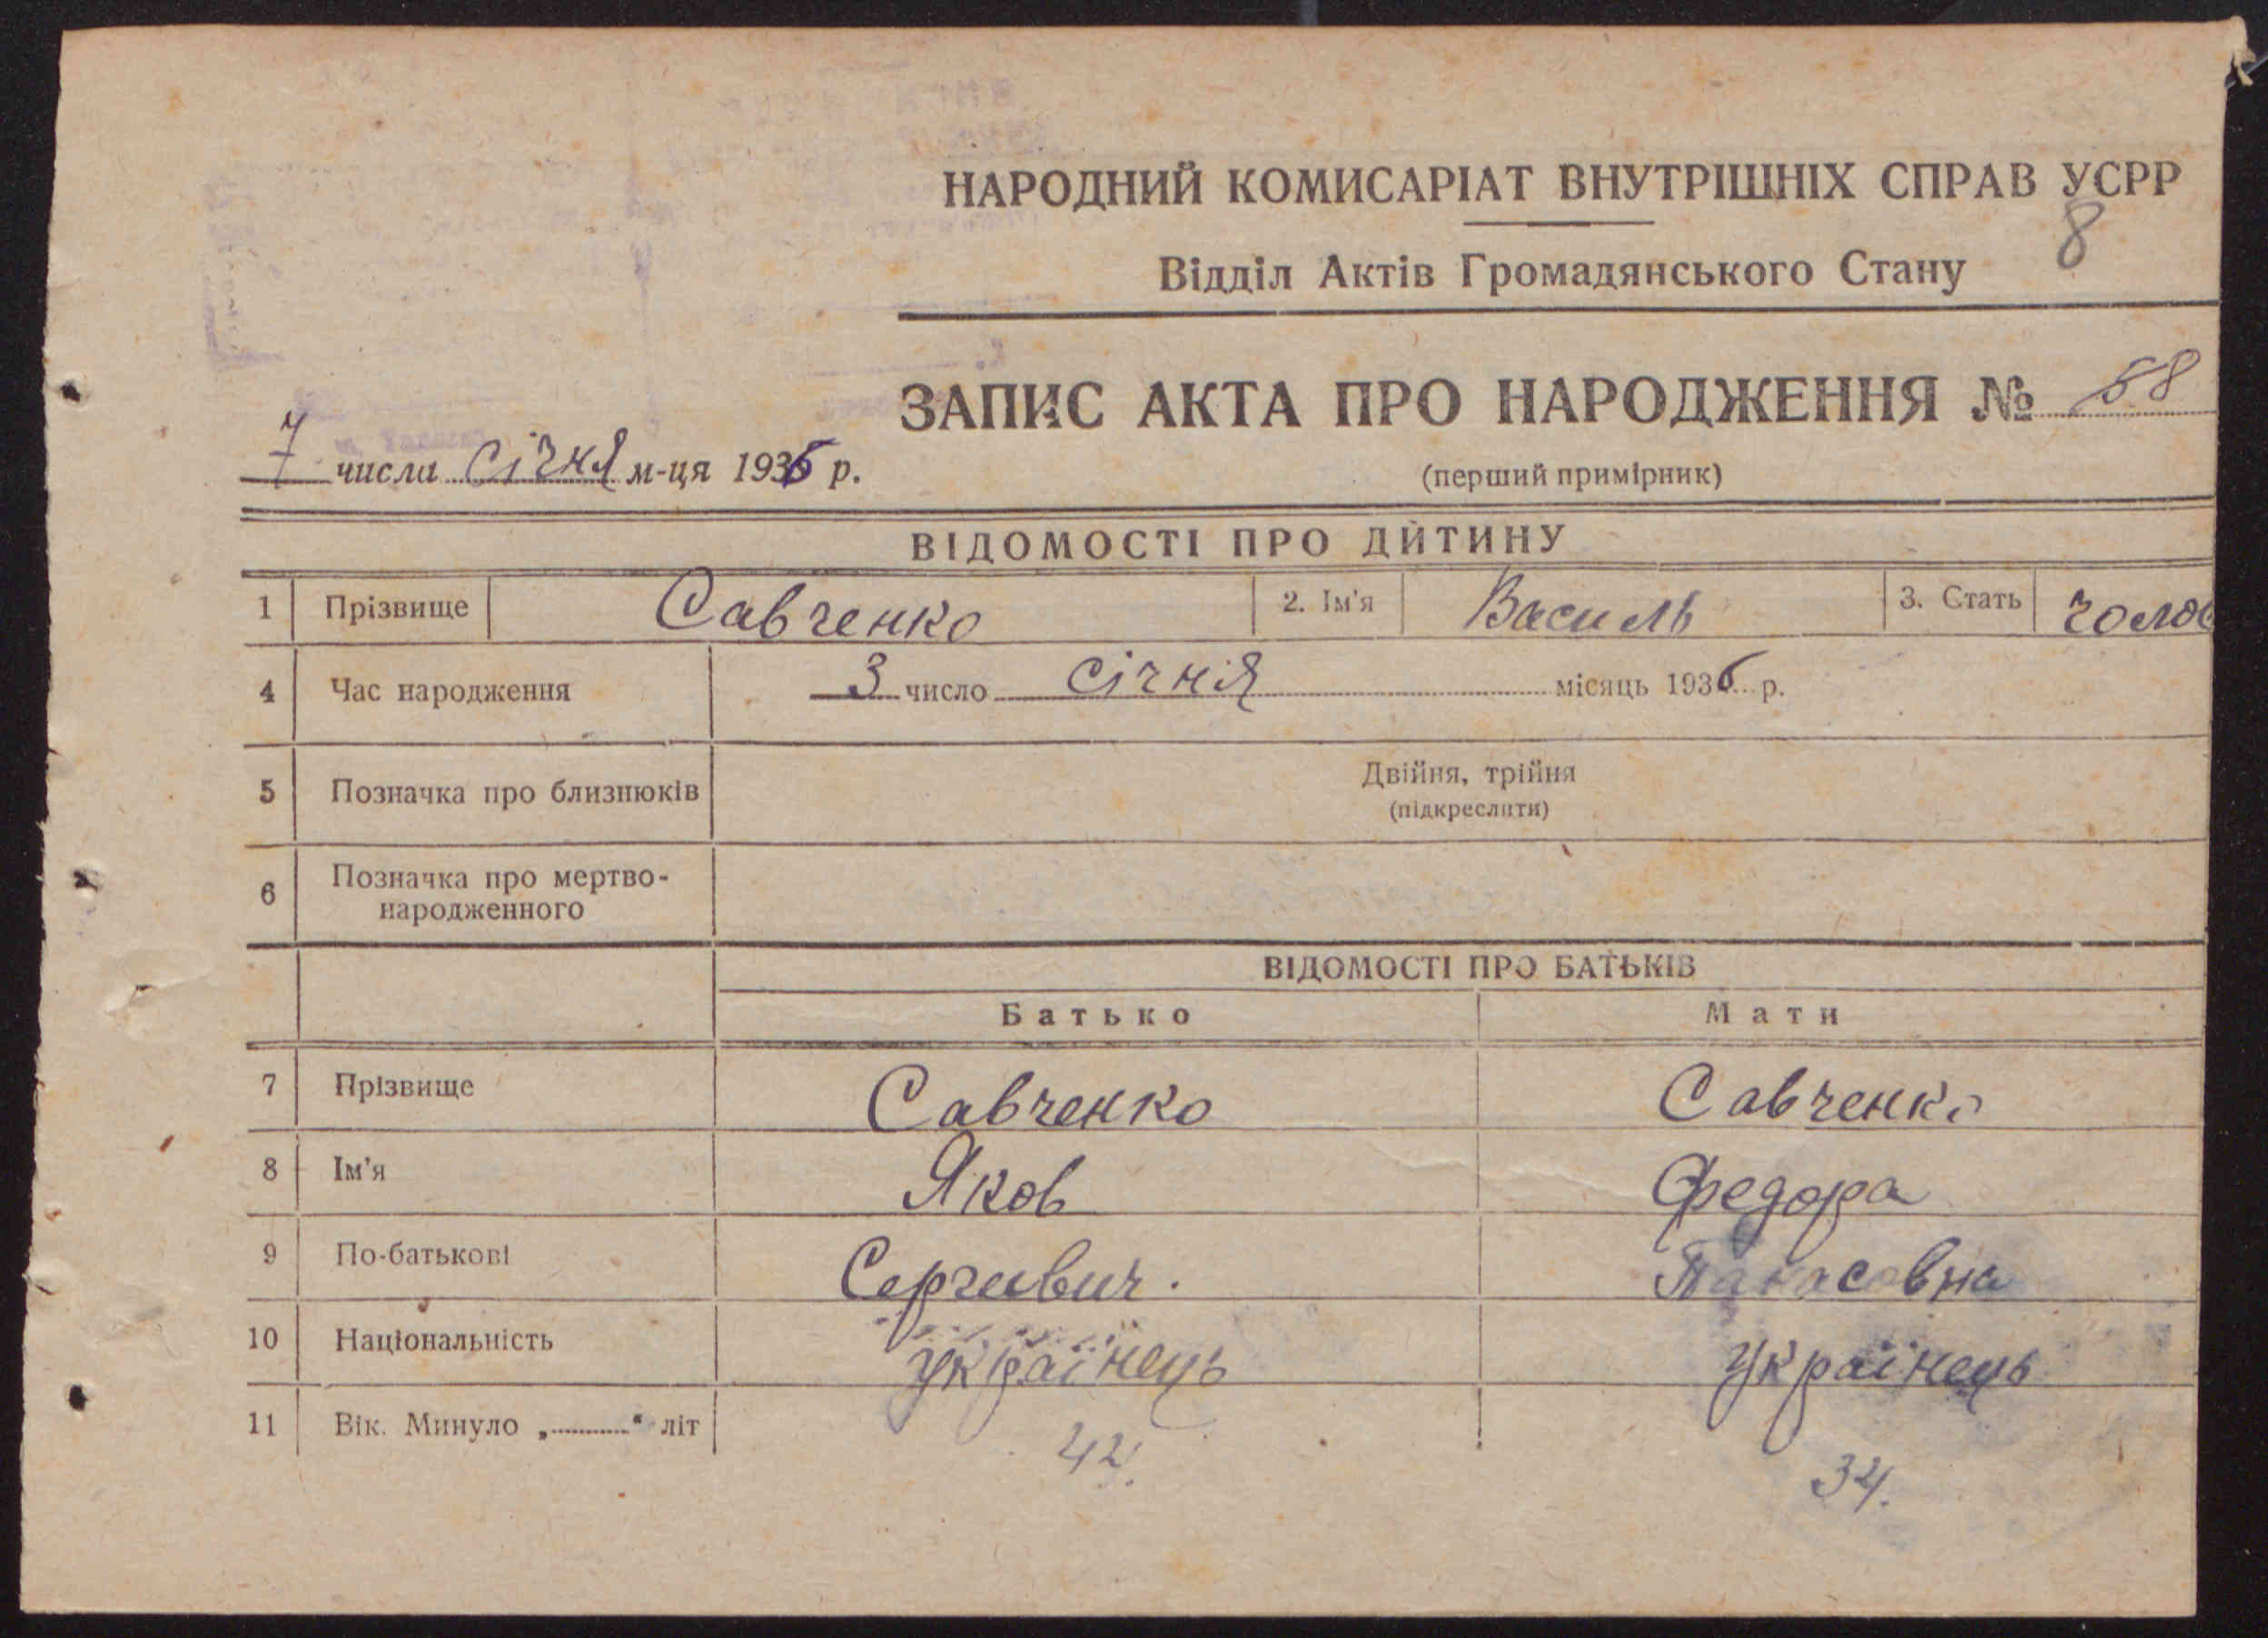 НАРОДНИЙ КОМИСАРІАТ ВНУТРІШНІХ СПРАВ УСРР
8
Відділ Актів Громадянського Стану
ЗАПИС АКТА ПРО НАРОДЖЕННЯ № 68
7 числа січня м-ця 1936 р.
(перший примірник)
ВІДОМОСТІ ПРО ДИТИНУ
1 Прізвище Савченко 2. Ім'я Василь 3. Стать чолов
4 Час народження 3 число січня місяць 1936 р.
5 Позначка про близнюків Двійня, трійня
(підкреслити)
6 Позначка про мертво-
народженного
ВІДОМОСТІ ПРО БАТЬКІВ
Батько Мати
7 Прізвище Савченко Савченко
8 Ім'я Яков Федора
9 По-батькові Сергиевич. Панасовна
10 Національність українець українець
11 Вік. Минуло „ “ літ 42. 34.